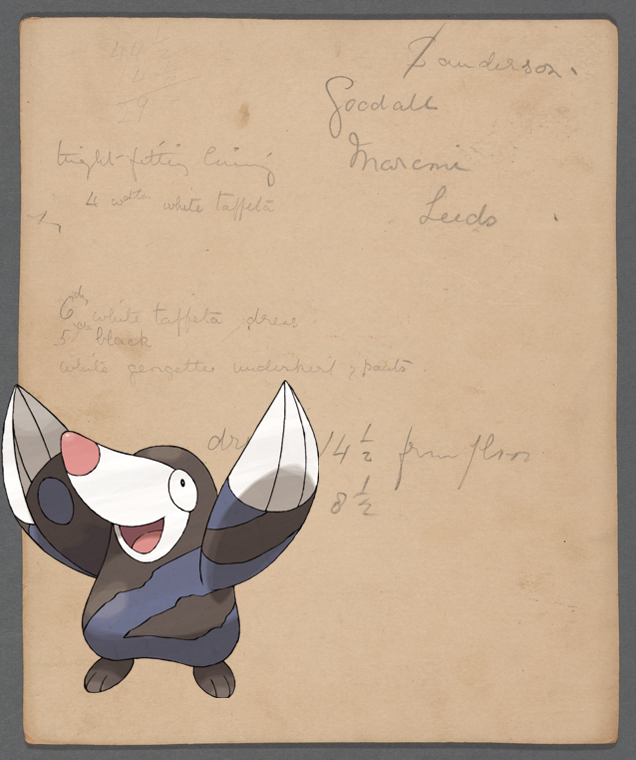 44
4
29
Sanderson.
Goodall
Marconi
Leeds
tight-fitting lining
4 white taffeta
6 yds white taffeta dress
5 yds black
white georgette underskirt & pants
14 1/2 from floor
8 1/2